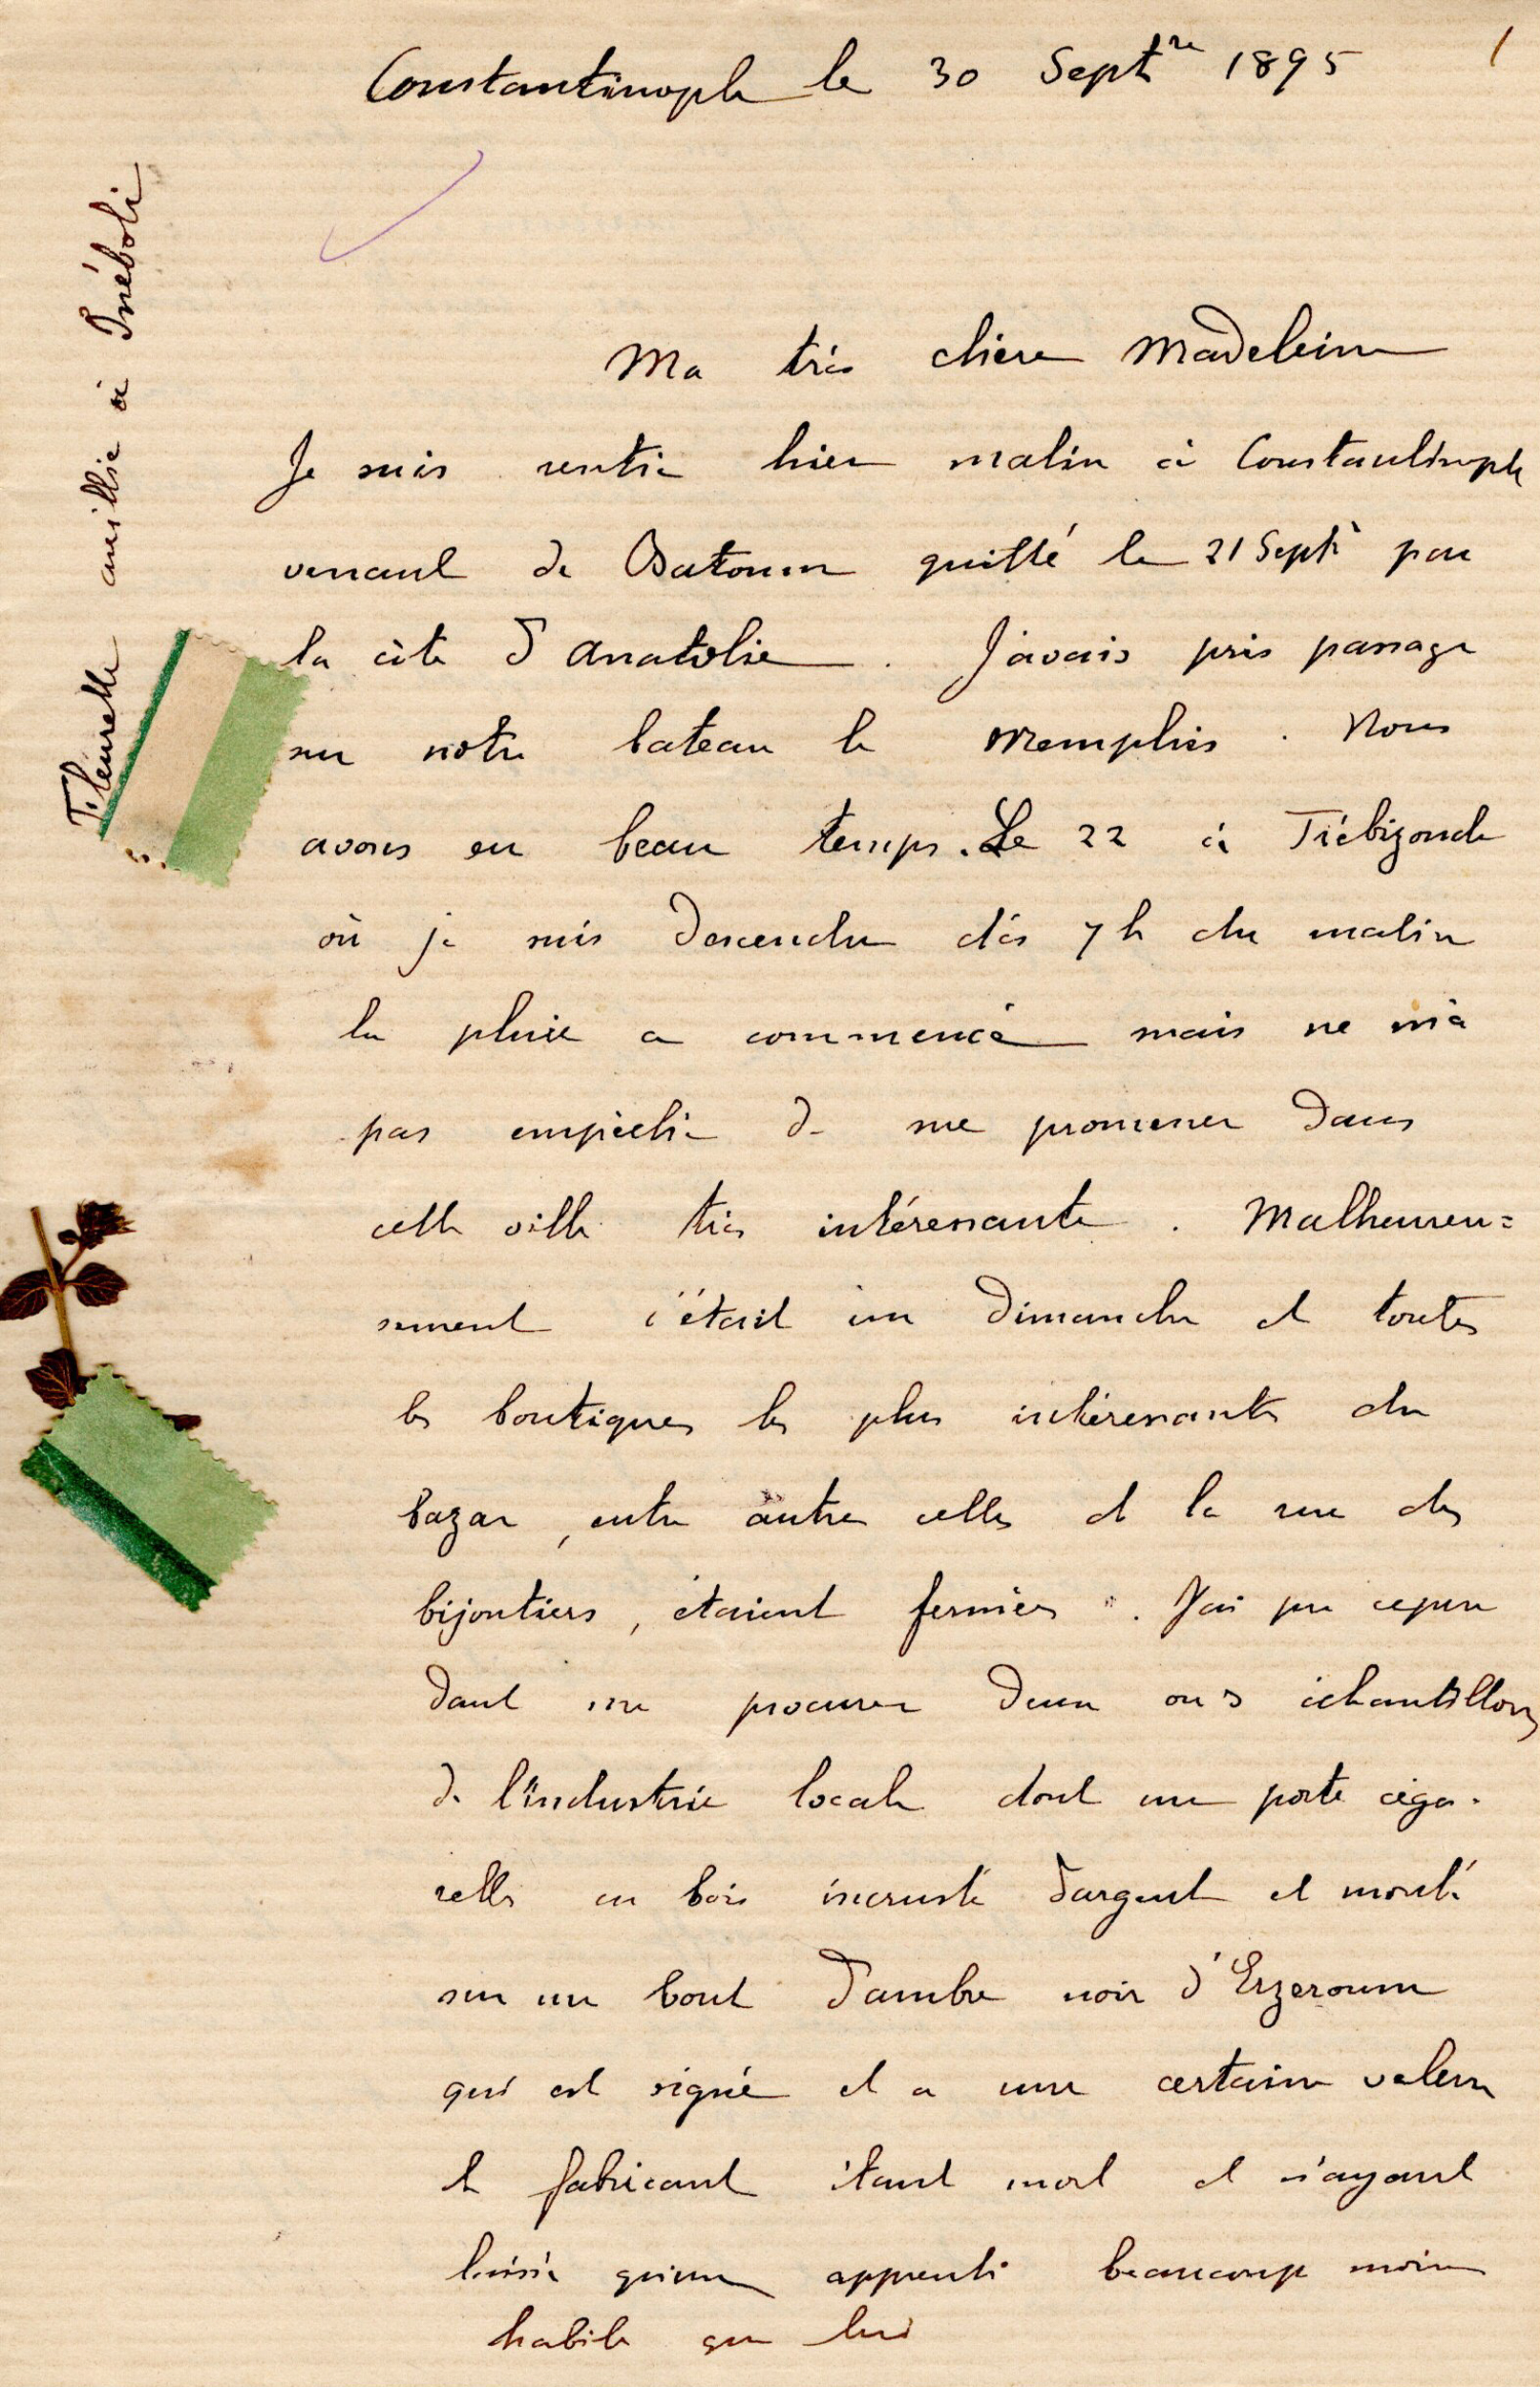 1
Constantinople le 30 Septre 1895
Fleurette cueillie à Inéboli
Ma très chère Madeleine
Je suis rentré hier matin à Constantinople
venant de Batoum quitté le 21 Septe par
la côte d'Anatolie. J'avais pris passage
sur notre bateau le Memphis. Nous
avons eu beau temps. Le 22 à Trébizonde
où je suis descendu dès 7 h du matin
la pluie a commencé mais ne m'a
pas empêché de me promener dans
cette ville très intéressante. Malheureu=
sement c'était un Dimanche et toutes
les boutiques les plus intéressantes du
bazar, entre autres celles de la rue des
bijoutiers, étaient fermées. J'ai pu cepen
dant me procurer deux ou 3 échantillons
de l'industrie locale dont un porte ciga-
rette en bois incrusté d'argent et monté
sur un bout d'ambre noir d'Erzeroum
qui est signé et a une certaine valeur
le fabricant étant mort et n'ayant
laissé qu'un apprenti beaucoup moins
habile que lui